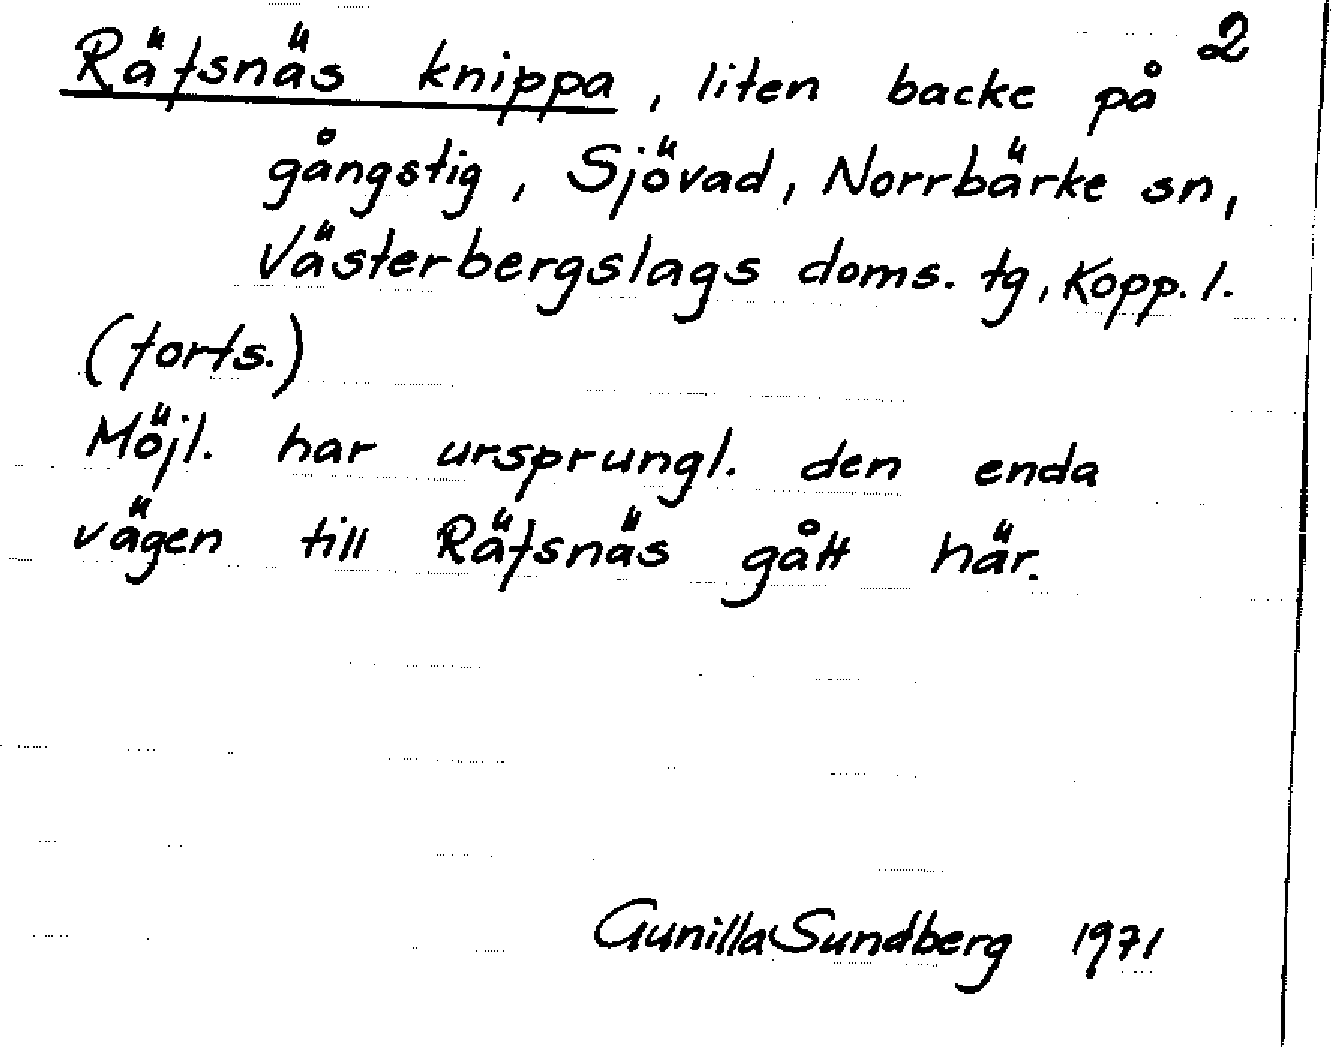 2
Räfsnäs knippa, liten backe på
gångstig, Sjövad, Norrbärke sn,
Västerbergslags doms. tg, Kopp. l.
(forts.)
Möjl. har ursprungl. den enda
vägen till Räfsnäs gått här.
Gunilla Sundberg 1971